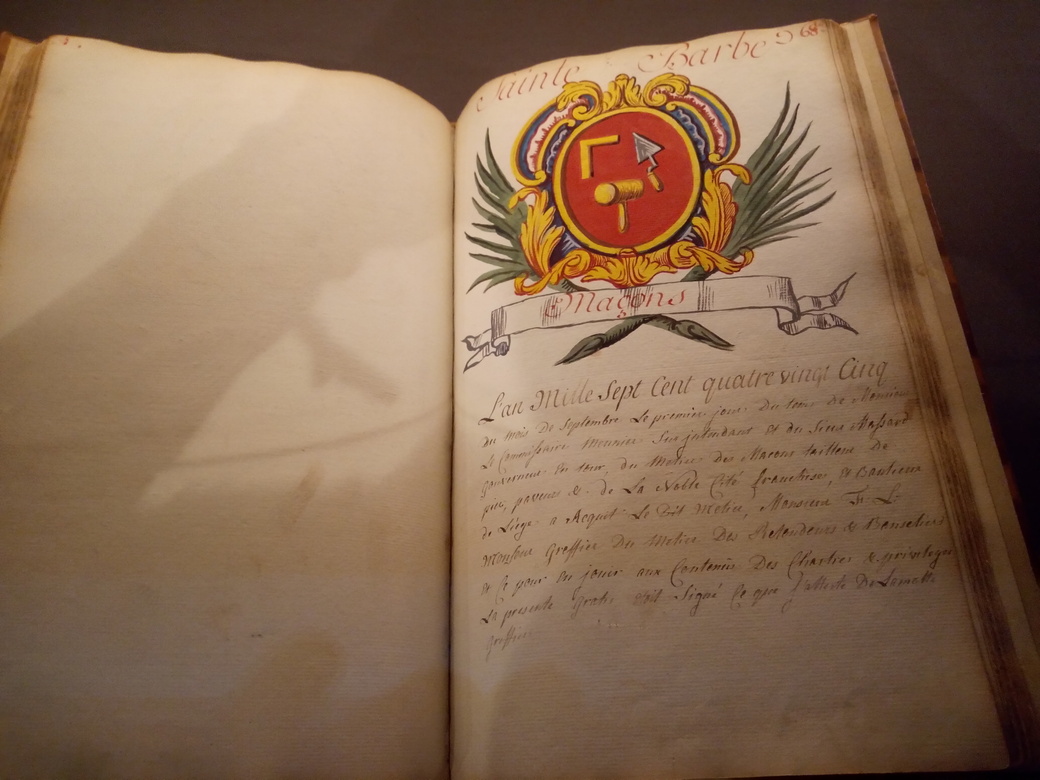 Sainte Barbe 268
Maçons
L'an Mille Sept Cent quatre vingt Cinq
du mois De Septembre Le premier jour Du tems de Monsieur
Le Commissaire Meunier Surjntendant Et du Sieur Massard
Gouverneur En tems, du Metier Des Macons tailleur De
pier, paveurs &. de La Noble Cité franchise, & Banlieue
de Liege a Acquit Le Dit Metier, Monsieur F: L:
Monseur Greffier Du Metier Des Retondeurs &
& Ce pour En jouir aux Contenus Des Chartres & privileges
La presente Gratis Signé Ce que J'atteste DeLamotte
greffier